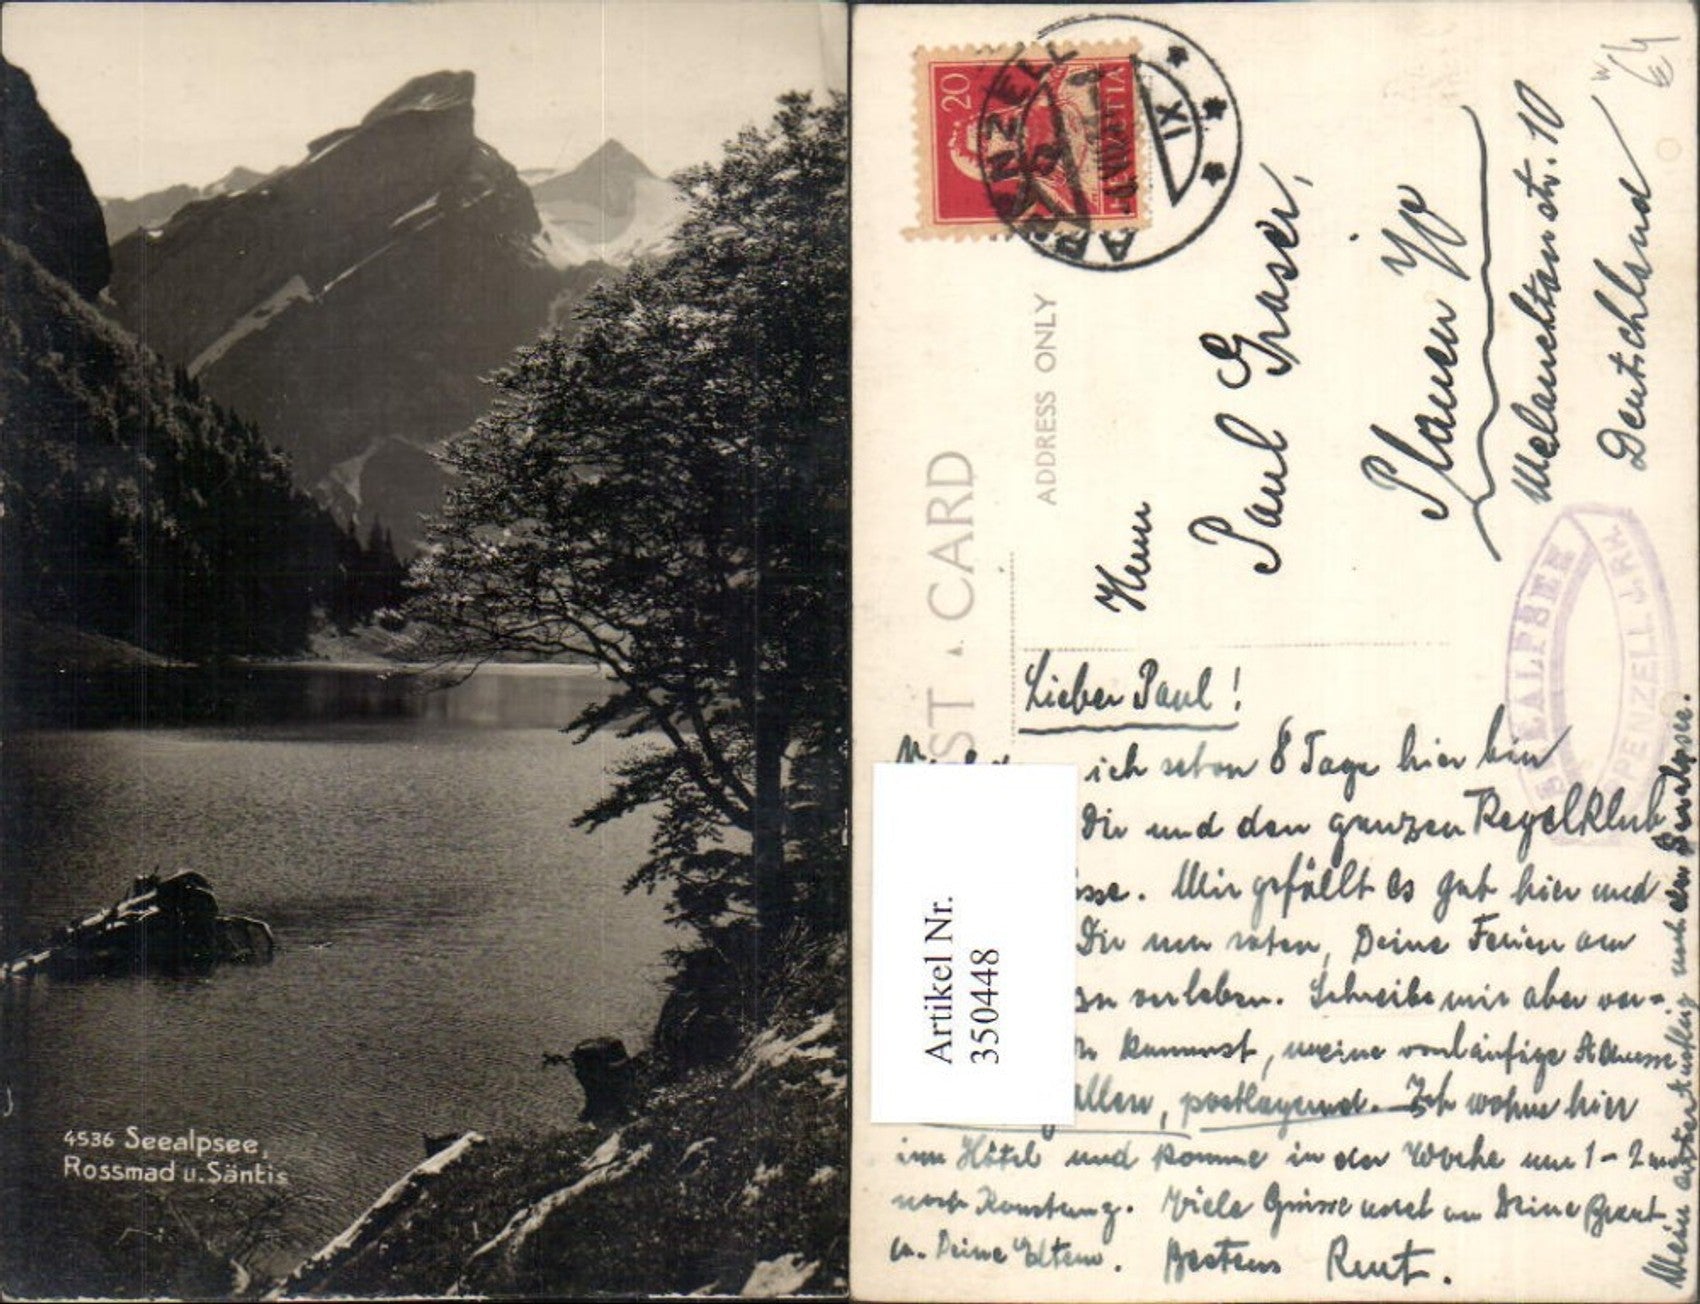 4536 Seealpsee,
Rossmad u. Säntis
POST CARD
ADDRESS ONLY
20
HELVETIA
APPENZELL
IX
Herrn
Paul Graser,
Plauen i/V
Melanchthonstr. 10
Deutschland
SEEALPSEE
APPENZELL J. RH.
Lieber Paul!
ich schon 8 Tage hier bin
Dir und den ganzen Kegelklub
Mir gefällt es gut hier und
Dir nur raten, Deine Ferien am
verleben. Schreibe mir aber vor-
kannst, meine vorläufige Adresse
allen, postlagernd. Ich wohne hier
im Hôtel und komme in der Woche nur 1-2 mal
nach Konstanz. Viele Grüsse auch an Deine Braut
u. Deine Eltern. Bestens Kurt.
Mein erster Ausflug nach den Seealpsee.
Artikel Nr.
350448